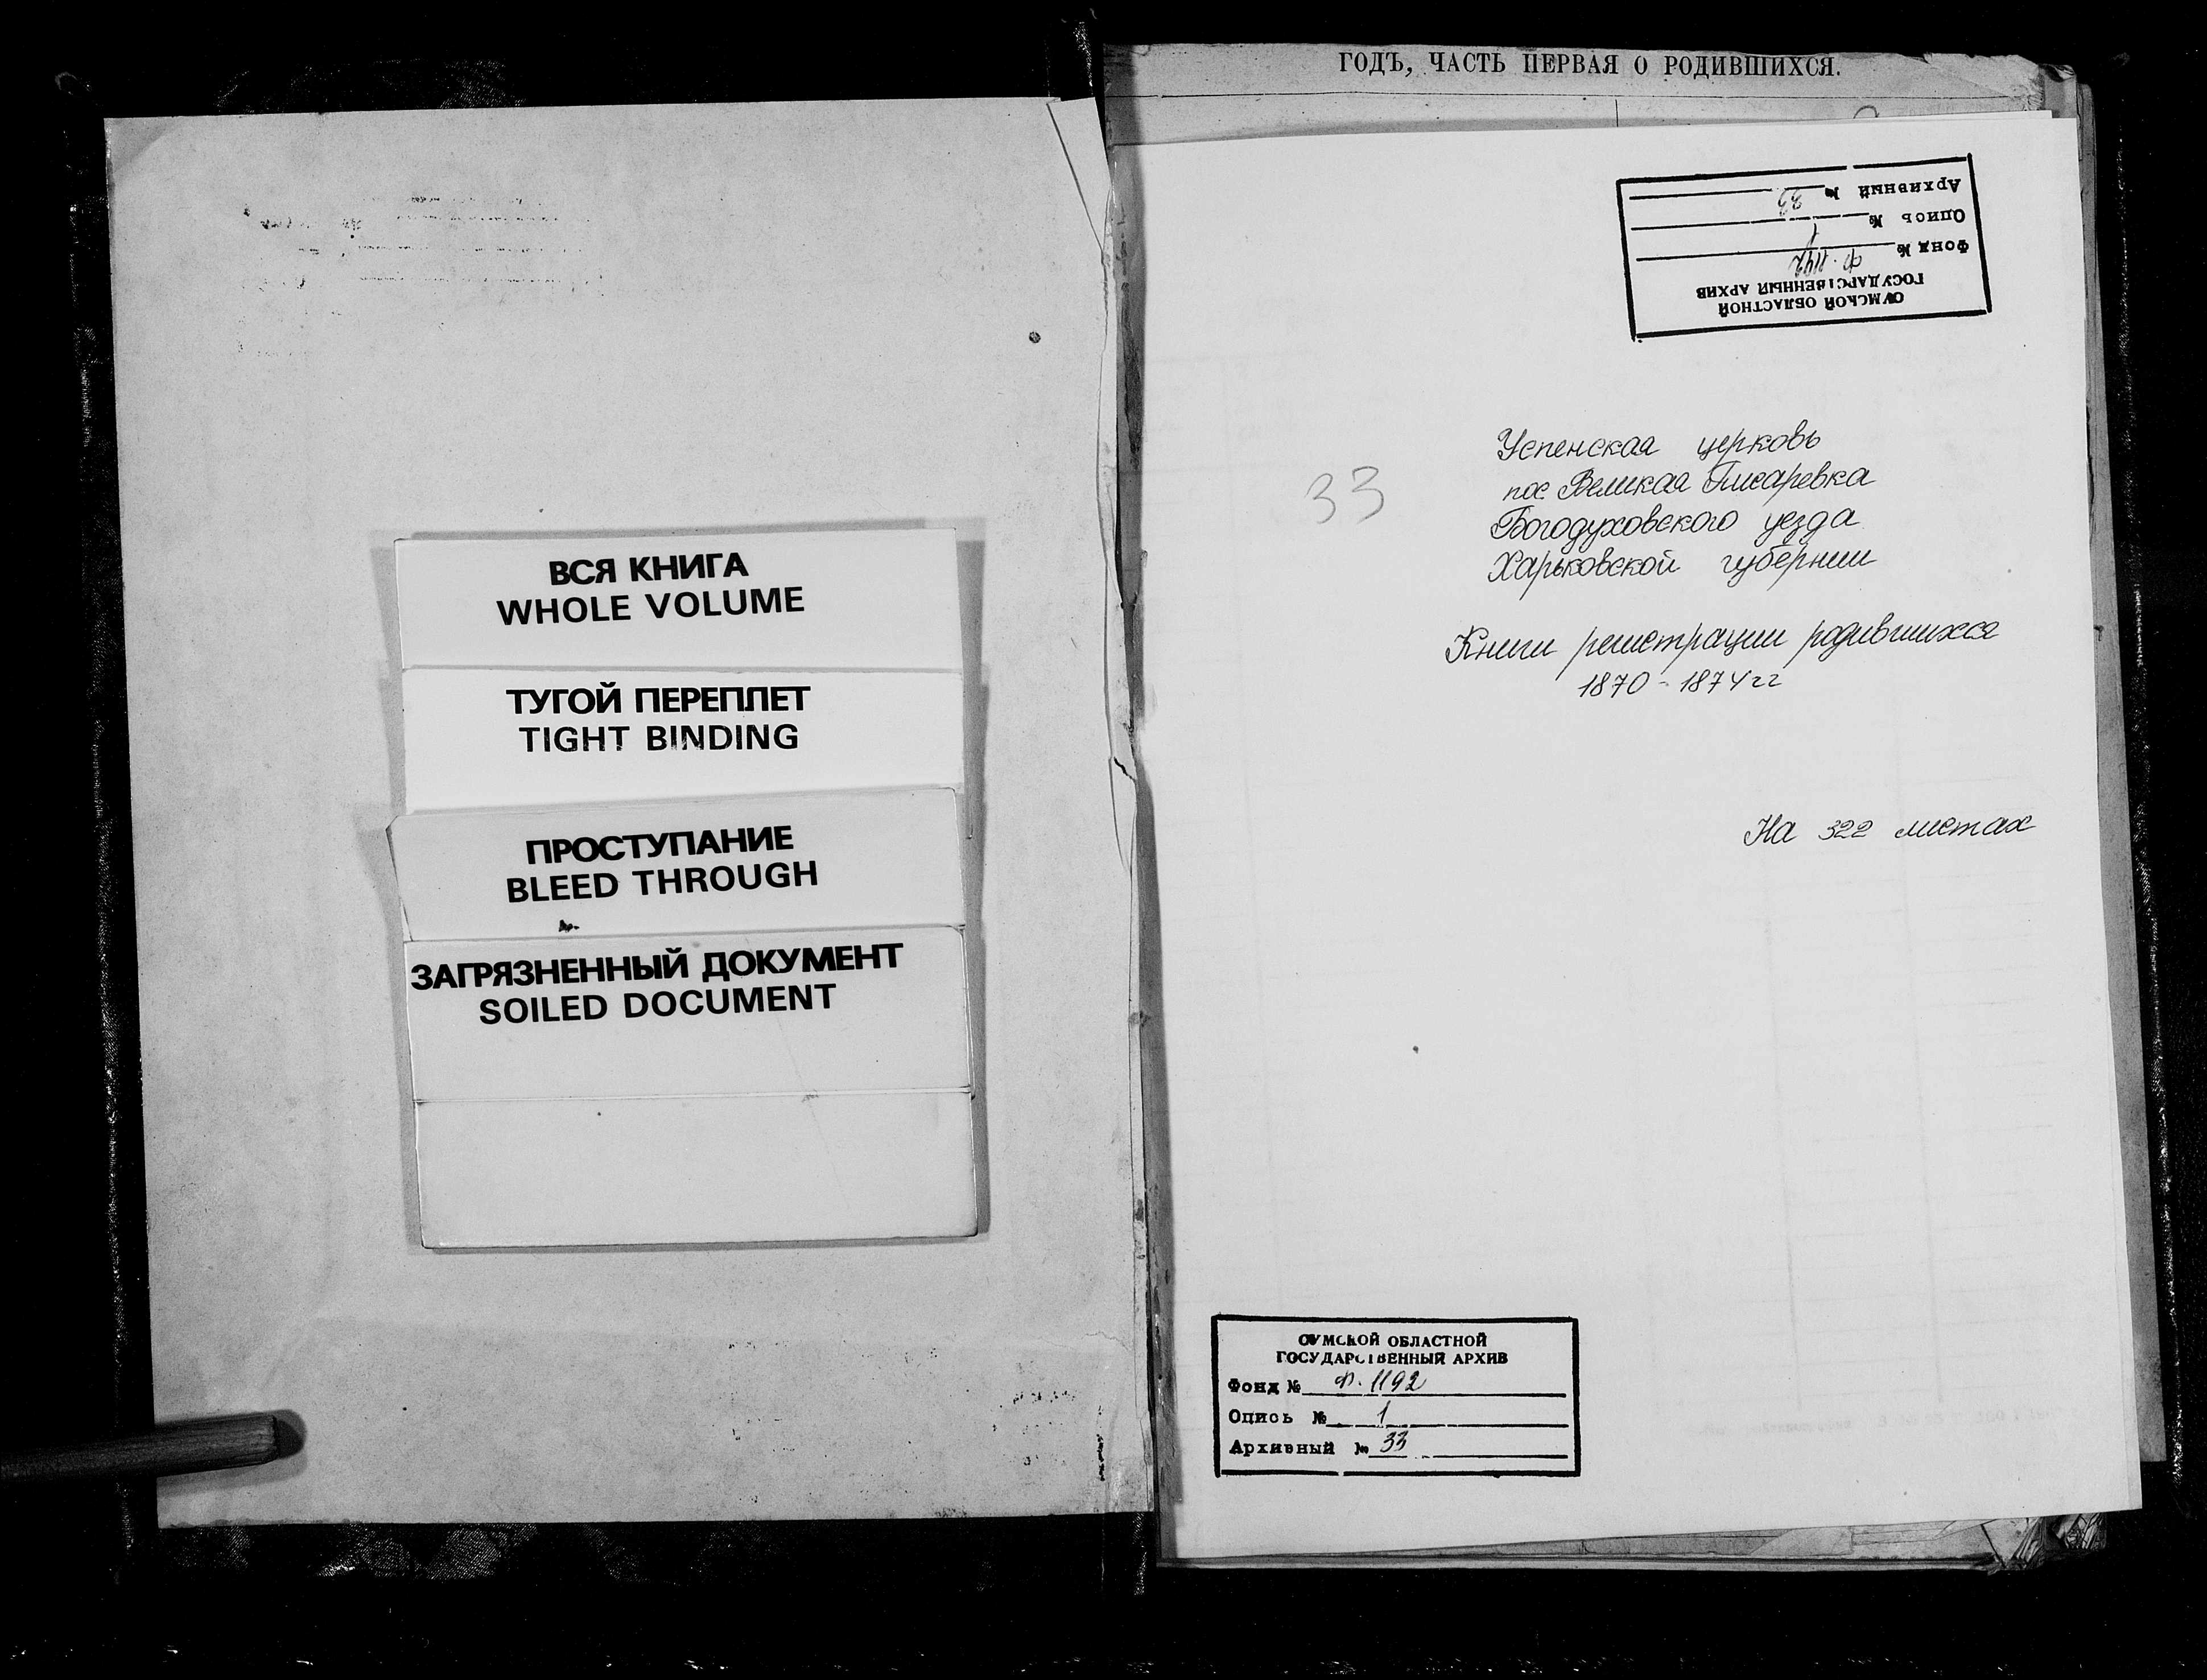 ВСЯ КНИГА
WHOLE VOLUME
ТУГОЙ ПЕРЕПЛЕТ
TIGHT BINDING
ПРОСТУПАНИЕ
BLEED THROUGH
ЗАГРЯЗНЕННЫЙ ДОКУМЕНТ
SOILED DOCUMENT
ГОДЪ, ЧАСТЬ ПЕРВАЯ О РОДИВШИХСЯ.
СУМСКОЙ ОБЛАСТНОЙ
ГОСУДАРСТВЕННЫЙ АРХИВ
Фонд № Ф. 1192
Опись № 1
Архивный № 33
33
Успенская церковь
пос Великая Писаревка
Богодуховского уезда
Харьковской губернии
Книги регистрации родившихся
1870 - 1874 гг
На 322 листах
СУМСКОЙ ОБЛАСТНОЙ
ГОСУДАРСТВЕННЫЙ АРХИВ
Фонд № Ф. 1192
Опись № 1
Архивный № 33